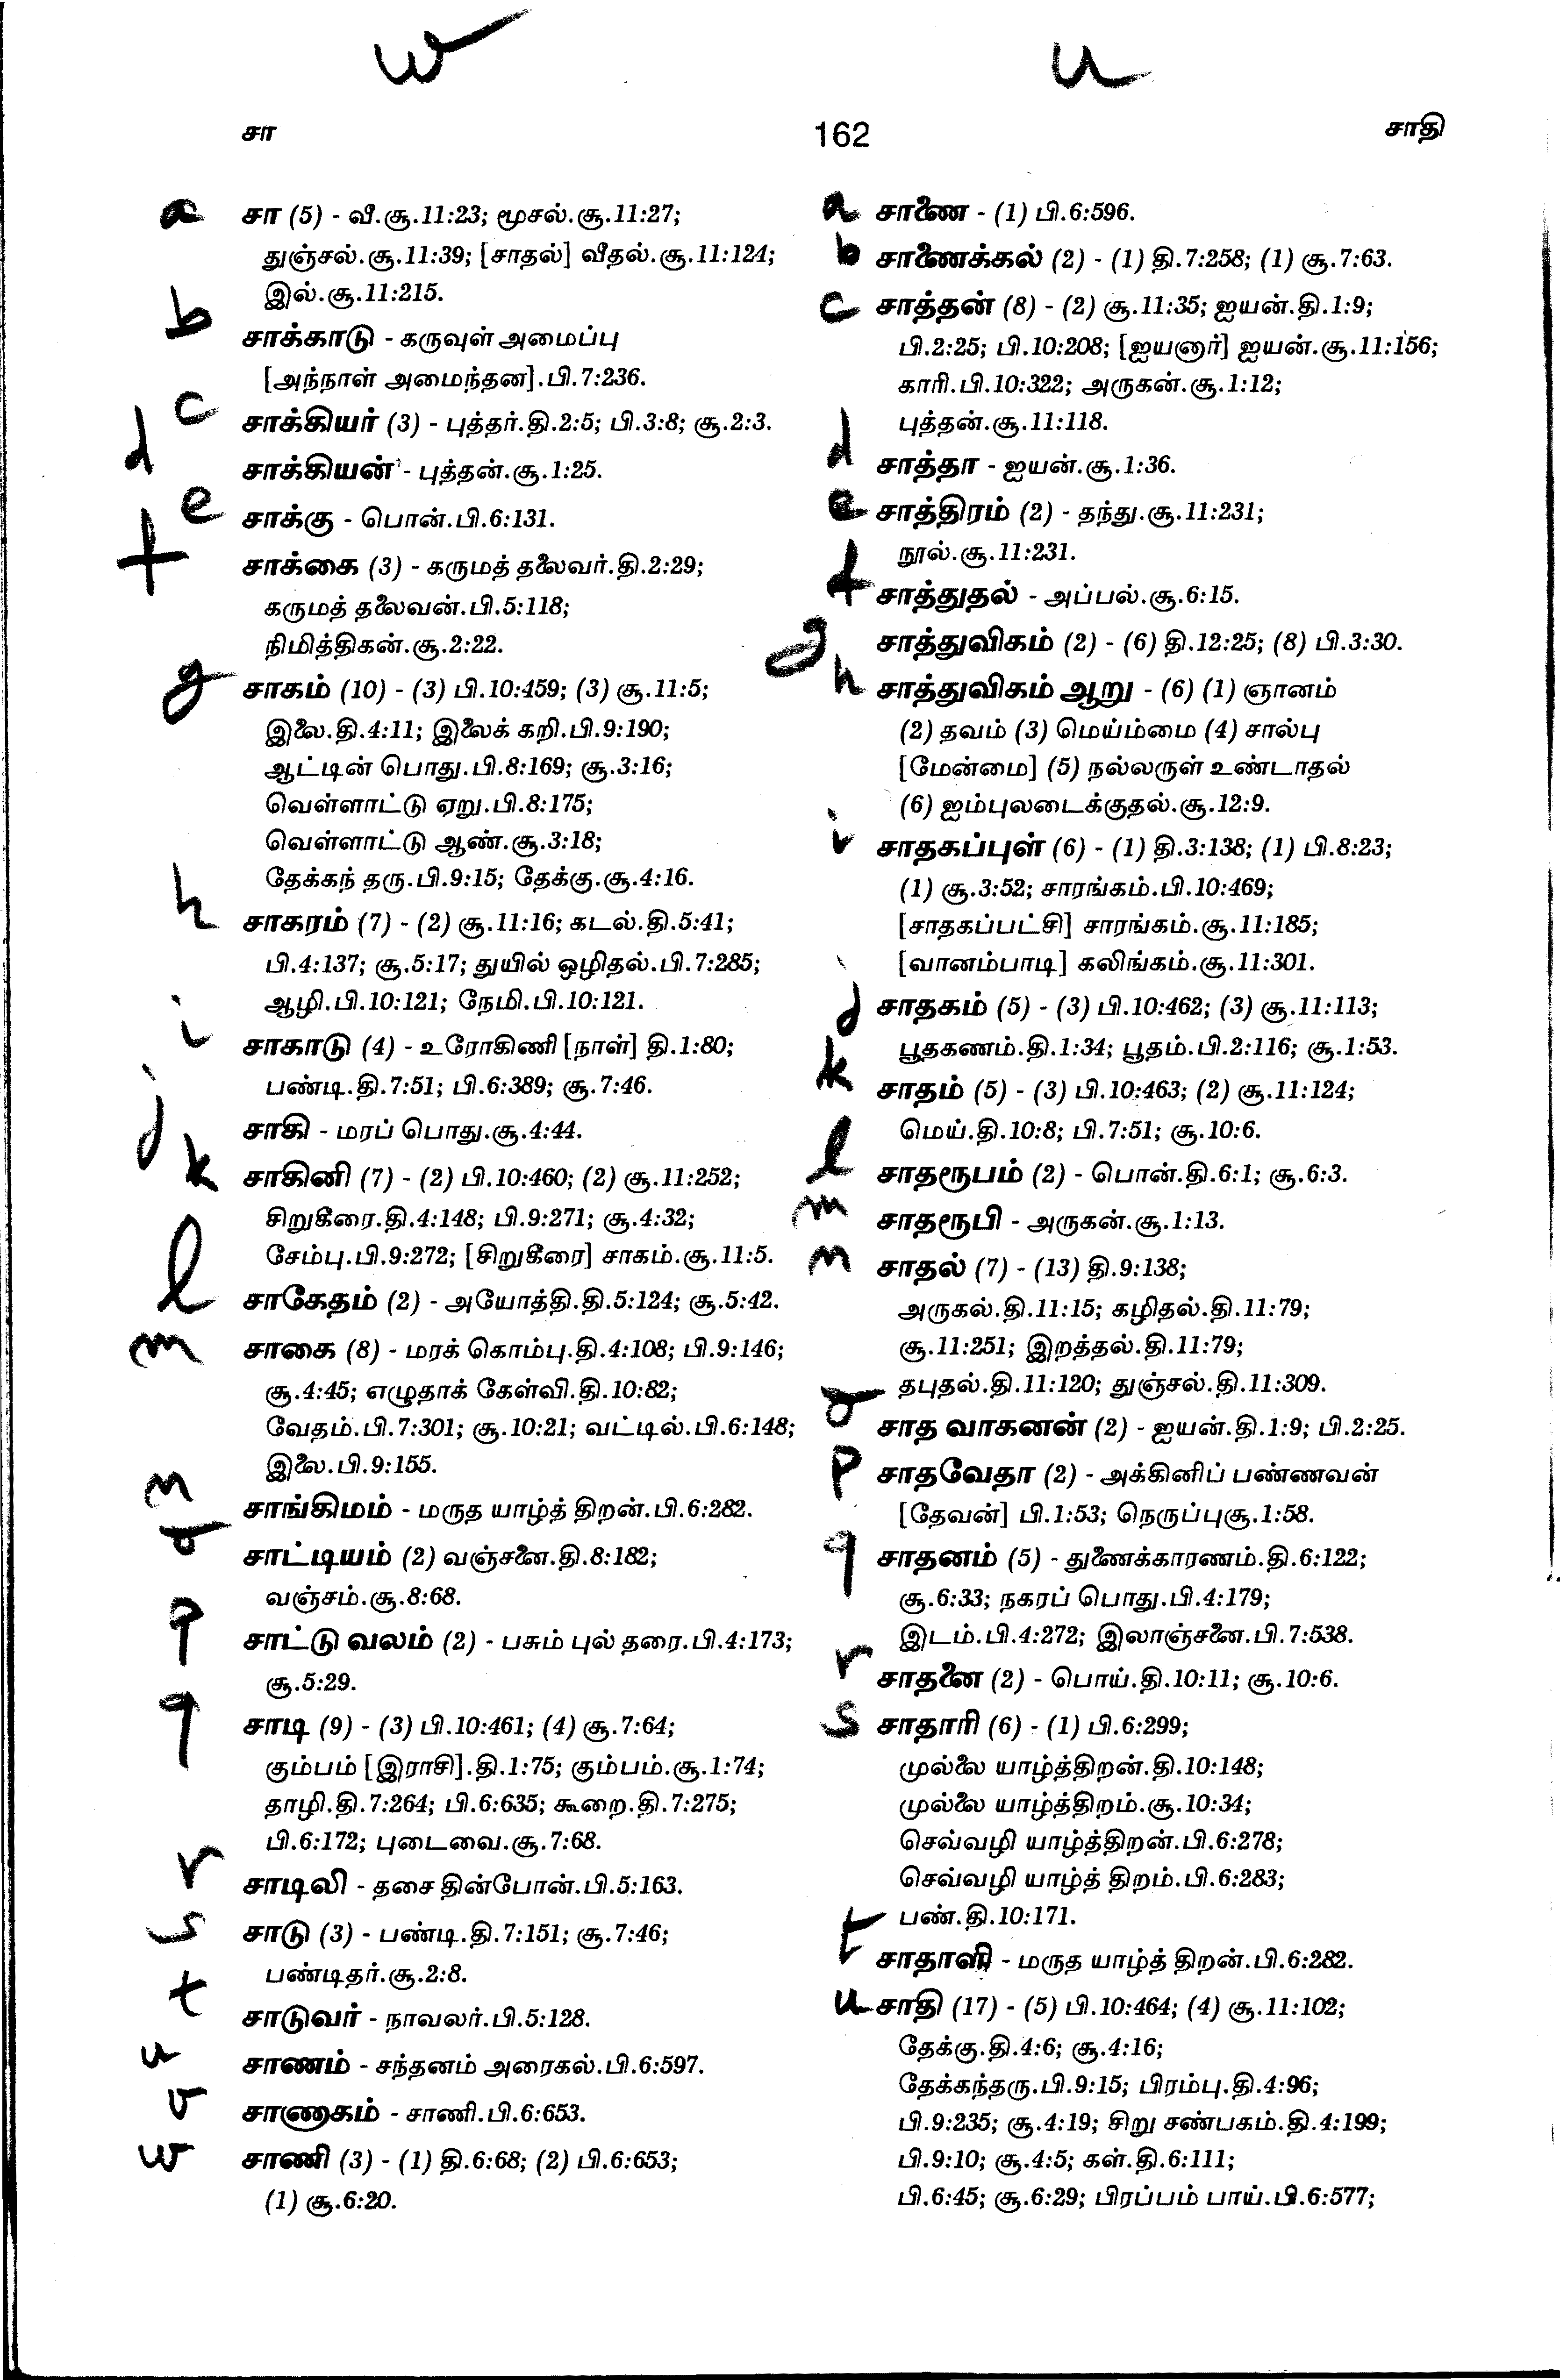 w
u
சா
162
சாதி
a
சா (5) - வீ.சூ.11:23; மூசல்.சூ.11:27;
துஞ்சல்.சூ.11:39; [சாதல்] வீதல்.சூ.11:124;
இல்.சூ.11:215.
b
சாக்காடு - கருவுள் அமைப்பு
[அந்நாள் அமைந்தன].பி.7:236.
c
சாக்கியர் (3) - புத்தர்.தி.2:5; பி.3:8; சூ.2:3.
d
சாக்கியன் - புத்தன்.சூ.1:25.
e
சாக்கு - பொன்.பி.6:131.
f
சாக்கை (3) - கருமத் தலைவர்.தி.2:29;
கருமத் தலைவன்.பி.5:118;
நிமித்திகன்.சூ.2:22.
g
சாகம் (10) - (3) பி.10:459; (3) சூ.11:5;
இலை.தி.4:11; இலைக் கறி.பி.9:190;
ஆட்டின் பொது.பி.8:169; சூ.3:16;
வெள்ளாட்டு ஏறு.பி.8:175;
வெள்ளாட்டு ஆண்.சூ.3:18;
தேக்கந் தரு.பி.9:15; தேக்கு.சூ.4:16.
h
சாகரம் (7) - (2) சூ.11:16; கடல்.தி.5:41;
பி.4:137; சூ.5:17; துயில் ஒழிதல்.பி.7:285;
ஆழி.பி.10:121; நேமி.பி.10:121.
i
சாகாடு (4) - உரோகிணி [நாள்] தி.1:80;
பண்டி.தி.7:51; பி.6:389; சூ.7:46.
j
சாகி - மரப் பொது.சூ.4:44.
k
சாகினி (7) - (2) பி.10:460; (2) சூ.11:252;
சிறுகீரை.தி.4:148; பி.9:271; சூ.4:32;
சேம்பு.பி.9:272; [சிறுகீரை] சாகம்.சூ.11:5.
l
சாகேதம் (2) - அயோத்தி.தி.5:124; சூ.5:42.
m
சாகை (8) - மரக் கொம்பு.தி.4:108; பி.9:146;
சூ.4:45; எழுதாக் கேள்வி.தி.10:82;
வேதம்.பி.7:301; சூ.10:21; வட்டில்.பி.6:148;
இலை.பி.9:155.
n
சாங்கிமம் - மருத யாழ்த் திறன்.பி.6:282.
o
சாட்டியம் (2) வஞ்சனை.தி.8:182;
வஞ்சம்.சூ.8:68.
p
சாட்டு வலம் (2) - பசும் புல் தரை.பி.4:173;
சூ.5:29.
q
சாடி (9) - (3) பி.10:461; (4) சூ.7:64;
கும்பம் [இராசி].தி.1:75; கும்பம்.சூ.1:74;
தாழி.தி.7:264; பி.6:635; கூறை.தி.7:275;
பி.6:172; புடைவை.சூ.7:68.
r
சாடிலி - தசை தின்போன்.பி.5:163.
s
சாடு (3) - பண்டி.தி.7:151; சூ.7:46;
பண்டிதர்.சூ.2:8.
t
சாடுவர் - நாவலர்.பி.5:128.
u
சாணம் - சந்தனம் அரைகல்.பி.6:597.
v
சாணாகம் - சாணி.பி.6:653.
w
சாணி (3) - (1) தி.6:68; (2) பி.6:653;
(1) சூ.6:20.
a
சாணை - (1) பி.6:596.
b
சாணைக்கல் (2) - (1) தி.7:258; (1) சூ.7:63.
c
சாத்தன் (8) - (2) சூ.11:35; ஐயன்.தி.1:9;
பி.2:25; பி.10:208; [ஐயனார்] ஐயன்.சூ.11:156;
காரி.பி.10:322; அருகன்.சூ.1:12;
புத்தன்.சூ.11:118.
d
சாத்தா - ஐயன்.சூ.1:36.
e
சாத்திரம் (2) - தந்து.சூ.11:231;
நூல்.சூ.11:231.
f
சாத்துதல் - அப்பல்.சூ.6:15.
g
சாத்துவிகம் (2) - (6) தி.12:25; (8) பி.3:30.
h
சாத்துவிகம் ஆறு - (6) (1) ஞானம்
(2) தவம் (3) மெய்ம்மை (4) சால்பு
[மேன்மை] (5) நல்லருள் உண்டாதல்
(6) ஐம்புலடைக்குதல்.சூ.12:9.
i
சாதகப்புள் (6) - (1) தி.3:138; (1) பி.8:23;
(1) சூ.3:52; சாரங்கம்.பி.10:469;
[சாதகப்பட்சி] சாரங்கம்.சூ.11:185;
[வானம்பாடி] கலிங்கம்.சூ.11:301.
j
சாதகம் (5) - (3) பி.10:462; (3) சூ.11:113;
பூதகணம்.தி.1:34; பூதம்.பி.2:116; சூ.1:53.
k
சாதம் (5) - (3) பி.10:463; (2) சூ.11:124;
மெய்.தி.10:8; பி.7:51; சூ.10:6.
l
சாதரூபம் (2) - பொன்.தி.6:1; சூ.6:3.
m
சாதரூபி - அருகன்.சூ.1:13.
n
சாதல் (7) - (13) தி.9:138;
அருகல்.தி.11:15; கழிதல்.தி.11:79;
சூ.11:251; இறத்தல்.தி.11:79;
தபுதல்.தி.11:120; துஞ்சல்.தி.11:309.
o
சாத வாகனன் (2) - ஐயன்.தி.1:9; பி.2:25.
p
சாதவேதா (2) - அக்கினிப் பண்ணவன்
[தேவன்] பி.1:53; நெருப்புசூ.1:58.
q
சாதனம் (5) - துணைக்காரணம்.தி.6:122;
சூ.6:33; நகரப் பொது.பி.4:179;
இடம்.பி.4:272; இலாஞ்சனை.பி.7:538.
r
சாதனை (2) - பொய்.தி.10:11; சூ.10:6.
s
சாதாரி (6) - (1) பி.6:299;
முல்லை யாழ்த்திறன்.தி.10:148;
முல்லை யாழ்த்திறம்.சூ.10:34;
செவ்வழி யாழ்த்திறன்.பி.6:278;
செவ்வழி யாழ்த் திறம்.பி.6:283;
பண்.தி.10:171.
t
சாதாளி - மருத யாழ்த் திறன்.பி.6:282.
u
சாதி (17) - (5) பி.10:464; (4) சூ.11:102;
தேக்கு.தி.4:6; சூ.4:16;
தேக்கந்தரு.பி.9:15; பிரம்பு.தி.4:96;
பி.9:235; சூ.4:19; சிறு சண்பகம்.தி.4:199;
பி.9:10; சூ.4:5; கள்.தி.6:111;
பி.6:45; சூ.6:29; பிரப்பம் பாய்.பி.6:577;